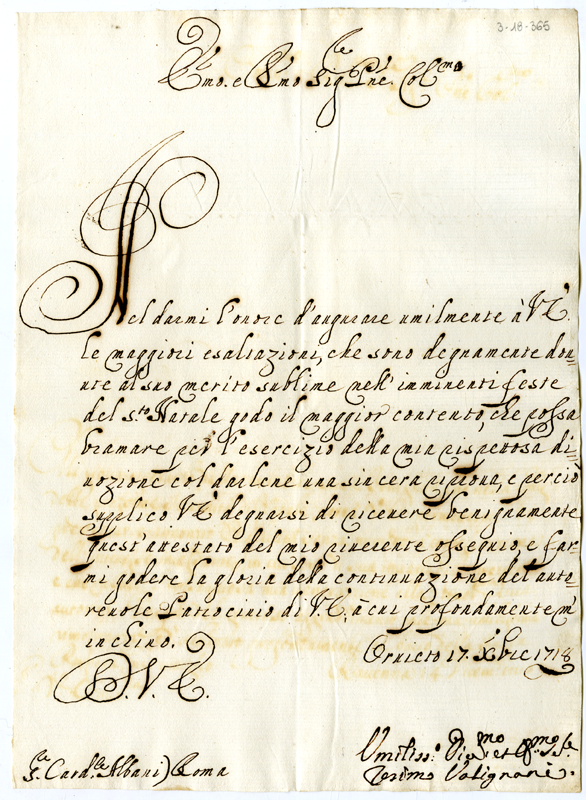 3-18-365
Em̃o. e Rm̃o Sig.re Pñe Col.mo
Nel darmi l'onore d'augurare umilmente à V.E.
le maggiori esaltazioni, che sono degnamente dou=
ute al suo merito sublime nell'imminenti feste
del S.to Natale godo il maggior contento, che possa
bramare per l'esercizio della mia rispettosa di=
uozione col darlene una sincera riproua, e perciò
supplico V.E. degnarsi di riceuere benignamente
quest'attestato del mio riuerente ossequio, e far=
mi godere la gloria della continuazione del auto=
reuole Patrocinio di V.E. à cui profondamente m'
inchino.
Oruieto 17. Xbre 1718
D. V. E.
Umiliss.o
S.re Card.le Albani) Roma